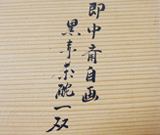 即中斎自画
黒赤茶碗一双